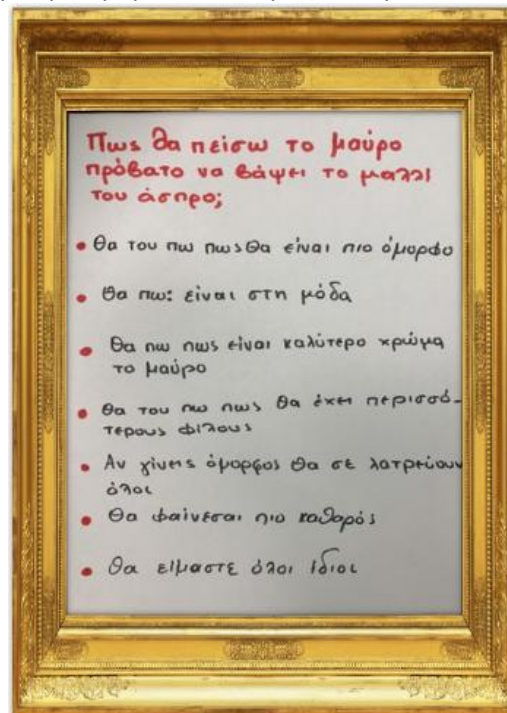 Πως θα πείσω το μαύρο
πρόβατο να βάψει το μαλλί
του άσπρο;
• Θα του πω πως θα είναι πιο όμορφο
• Θα πω: είναι στη μόδα
• Θα πω πως είναι καλύτερο χρώμα
το μαύρο
• Θα του πω πως θα έχει περισσό-
τερους φίλους
• Αν γίνεις όμορφος θα σε λατρεύουν
όλοι
• Θα φαίνεσαι πιο καθαρός
• Θα είμαστε όλοι ίδιοι